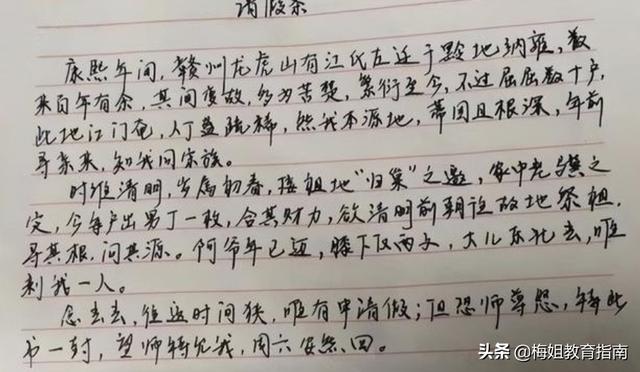 请假条
康熙年间,赣州龙虎山有江氏左迁于黔地纳雍,数
来百年有余,其间变故,多为苦楚,繁衍至今,不过屈屈数十户,
此地江门庭,人丁益疏稀,然我本源地,蒂固且根深,年前
寻亲来,知我同宗族。
时维清明,岁属初春,接祖地“归巢”之邀,家中老
定,今每户出男丁一枚,合其财力,欲清明前朝往故地祭祖,
寻其根,问其源。阿爷年已迈,膝下仅两丁,大儿东北去,唯
剩我一人。
念去去,往返时间狭,唯有申请假;但恐师尊怒,特此
书一封,望师特允我,周六安然回。
头条 @梅姐教育指南